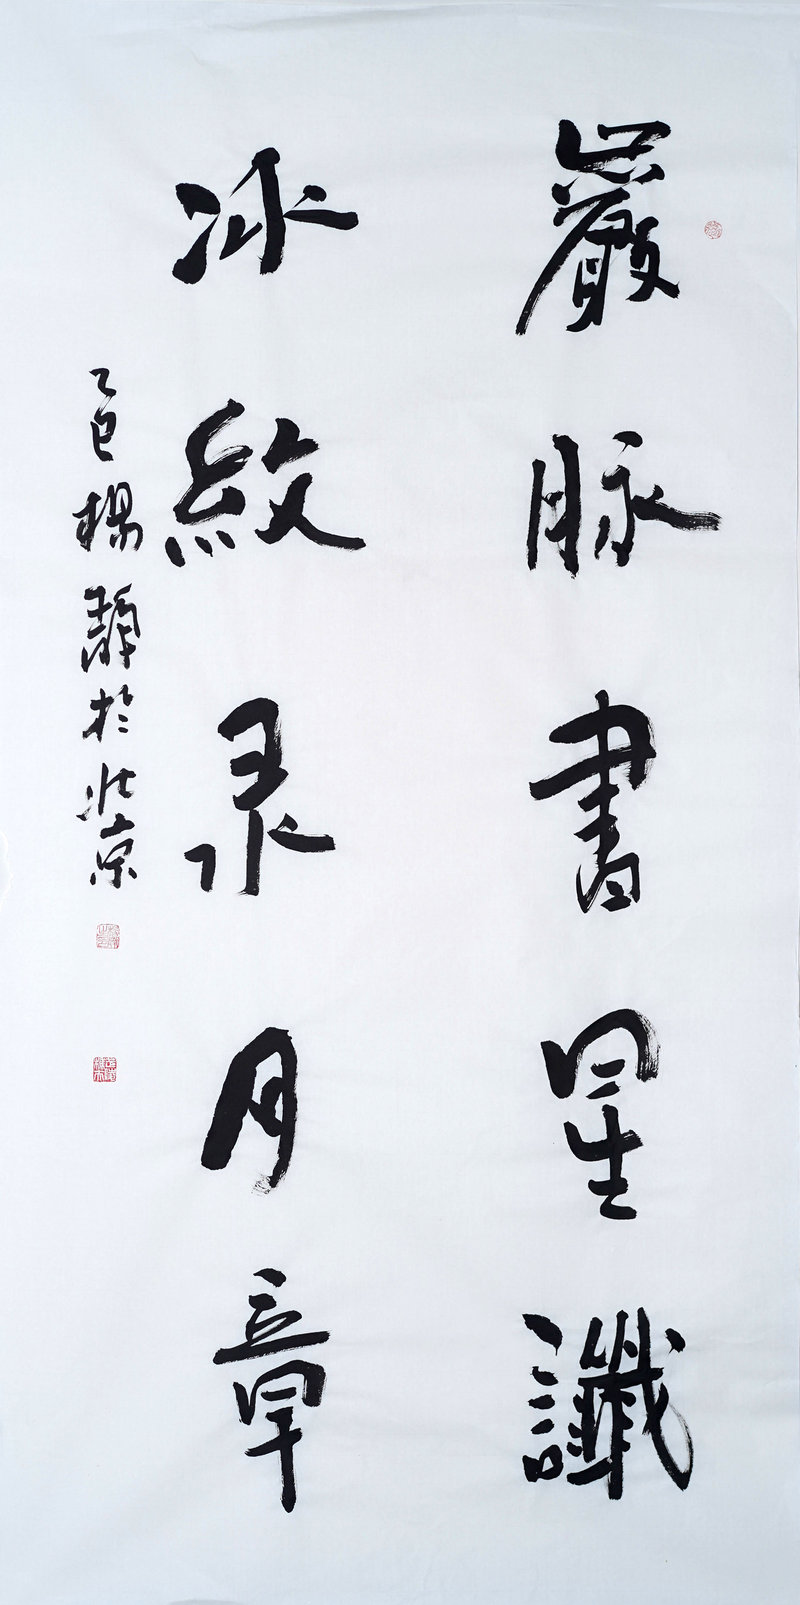 巖脉書星讖
冰紋录月章
乙巳楊靜於北京